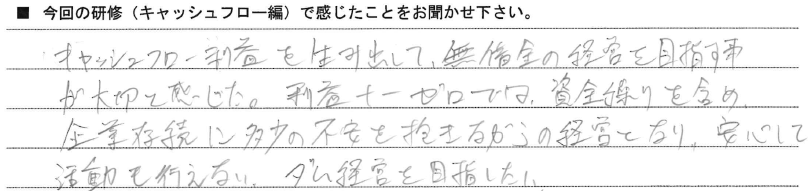 ■ 今回の研修（キャッシュフロー編）で感じたことをお聞かせ下さい。
キャッシュフロー利益を生み出して、無借金の経営を目指す事
が大切と感じた。利益+-ゼロでは、資金繰りを含め、
企業存続に多少の不安を抱きながらの経営となり、安心して
活動も行えない。ダム経営を目指したい。